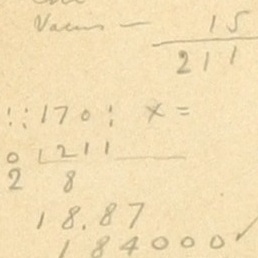 Vacuus — 15
211
: : 170 : x =
0 1211
2 8
18.87
184000 ✓